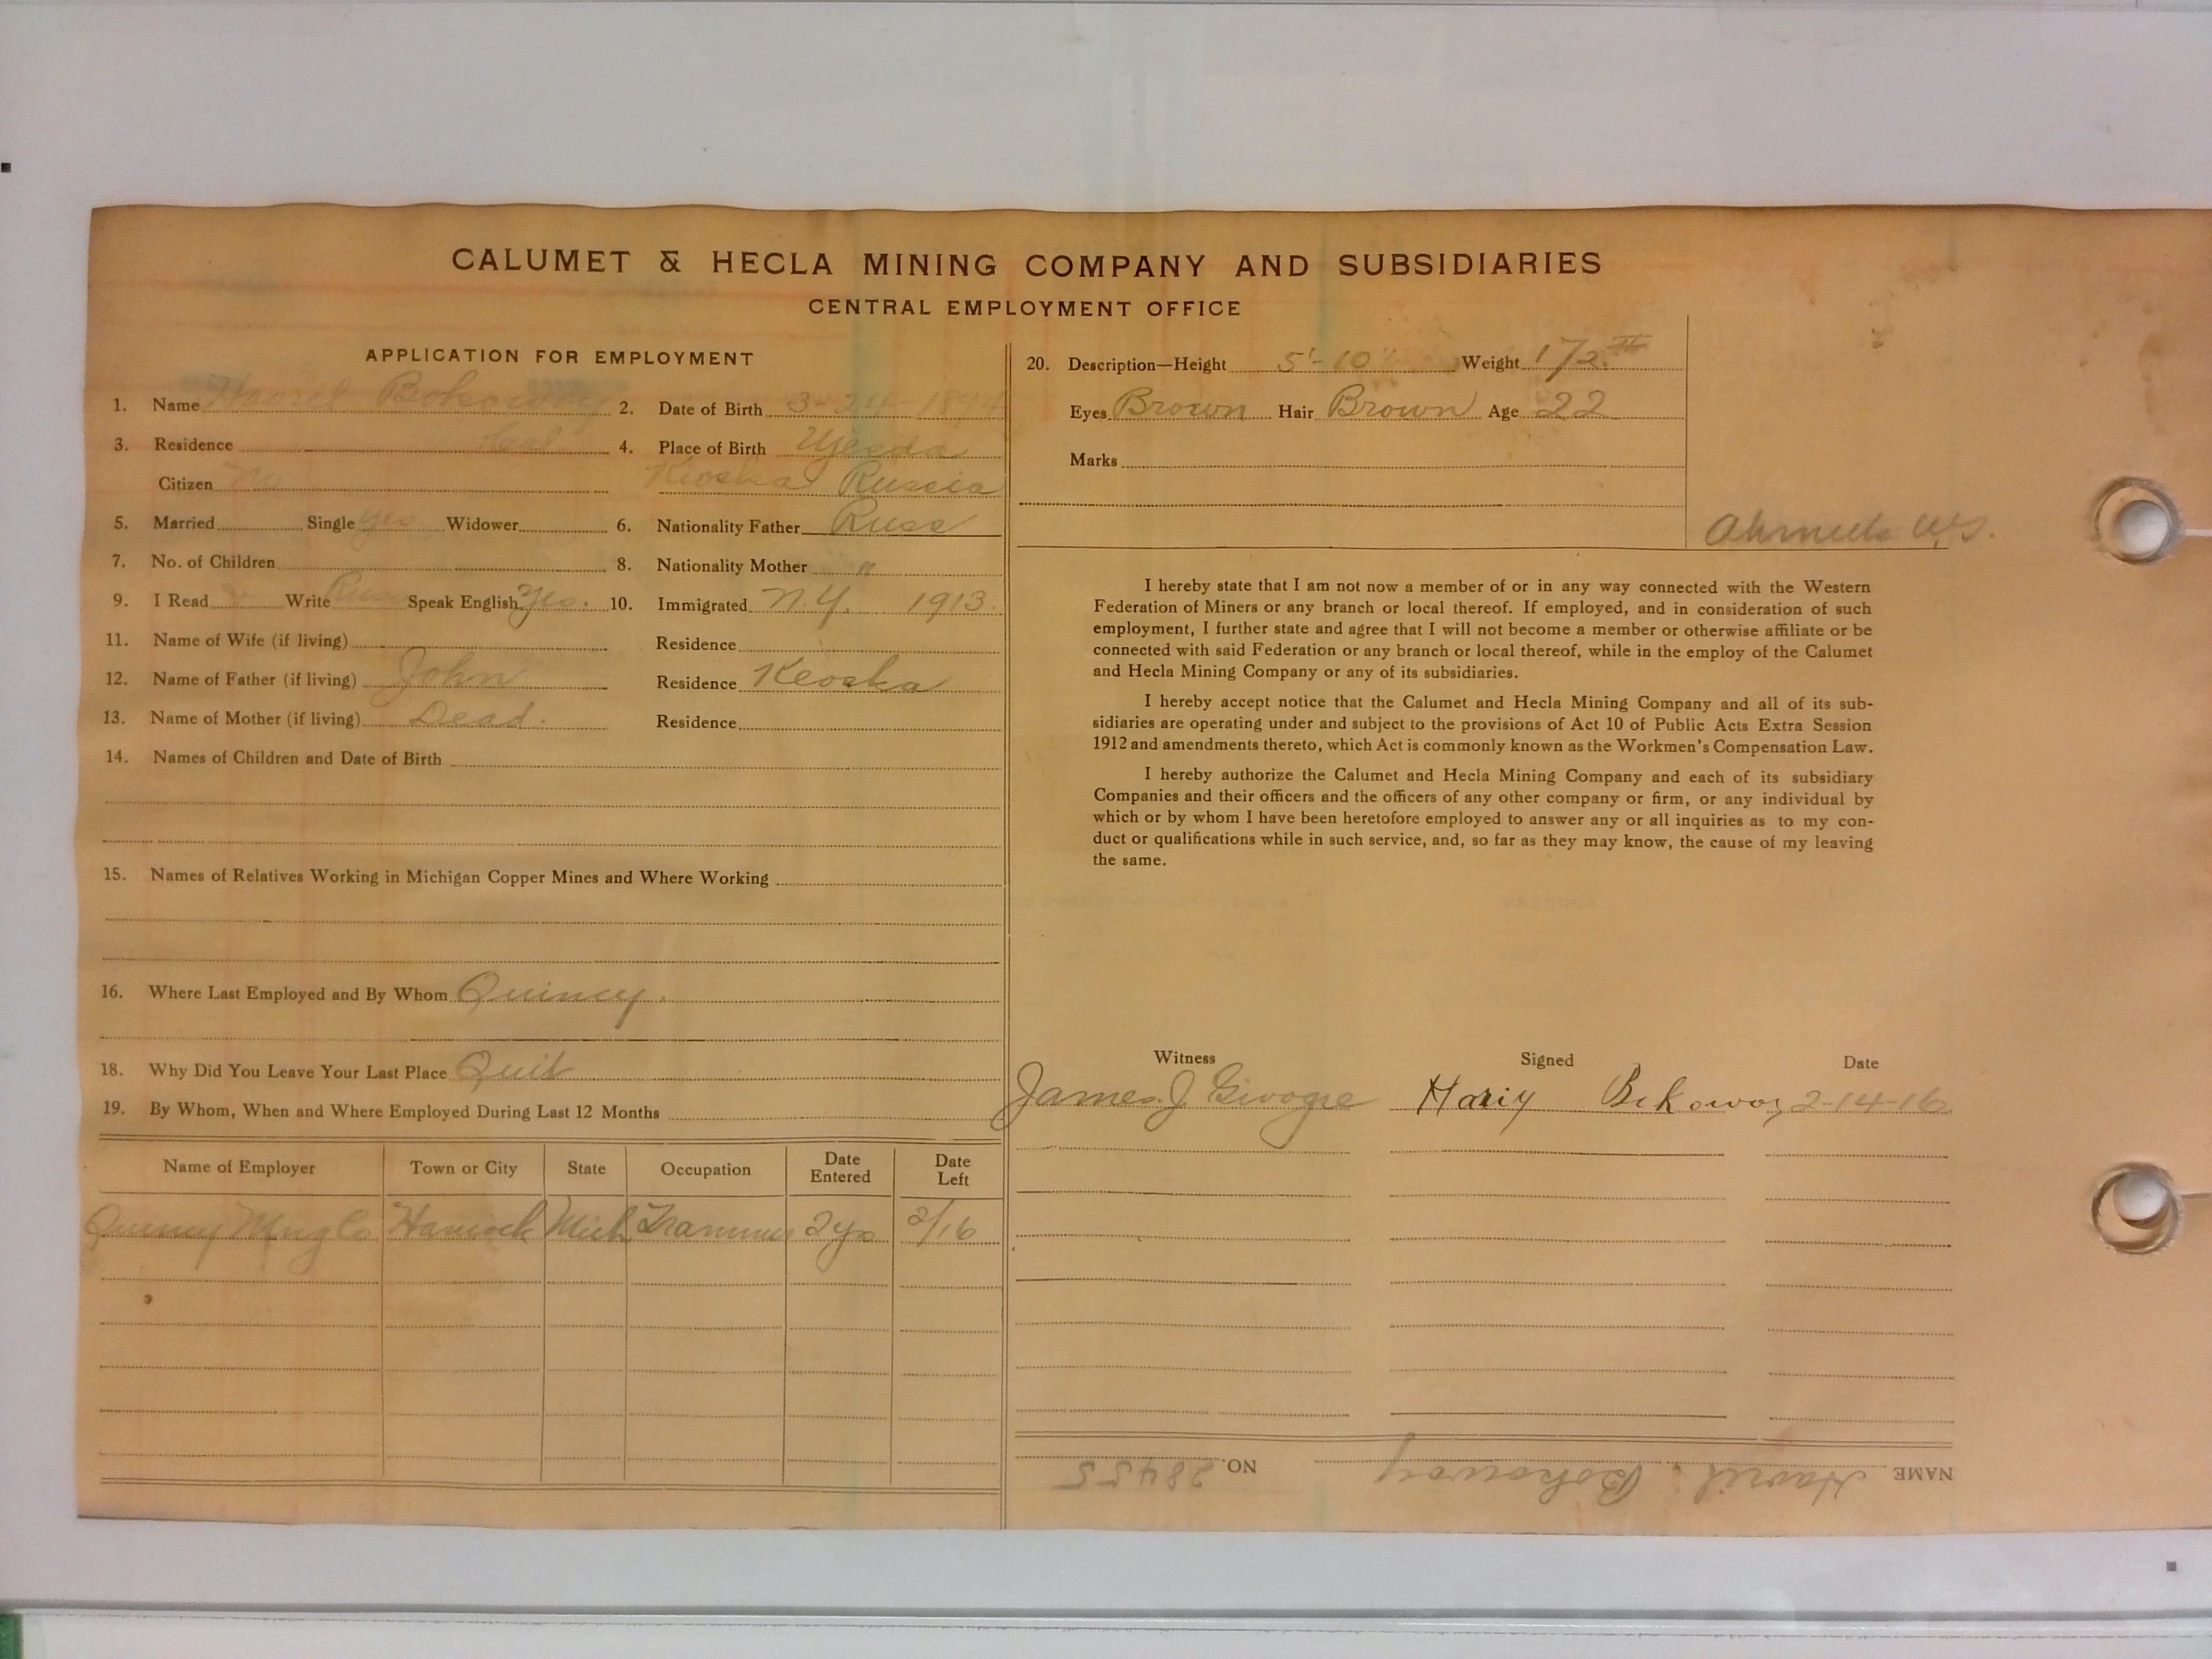 CALUMET & HECLA MINING COMPANY AND SUBSIDIARIES
CENTRAL EMPLOYMENT OFFICE
APPLICATION FOR EMPLOYMENT
1. Name
2. Date of Birth 3-24 1894
3. Residence
4. Place of Birth Ujezda
Citizen No
Kioska Russia
5. Married Single yes Widower
6. Nationality Father Russ
7. No. of Children
8. Nationality Mother "
9. I Read & Write Russ Speak English yes.
10. Immigrated N.Y. 1913.
11. Name of Wife (if living) Residence
12. Name of Father (if living) John Residence Keoska
13. Name of Mother (if living) Dead. Residence
14. Names of Children and Date of Birth
15. Names of Relatives Working in Michigan Copper Mines and Where Working
16. Where Last Employed and By Whom Quincy.
18. Why Did You Leave Your Last Place Quit
19. By Whom, When and Where Employed During Last 12 Months
Name of Employer Town or City State Occupation Date Entered Date Left
Quincy Mng Co Hancock Mich Trammer 2 yrs 2/16
20. Description—Height 5'-10" Weight 172 #
Eyes Brown Hair Brown Age 22
Marks
Ahmeek W.S.
I hereby state that I am not now a member of or in any way connected with the Western
Federation of Miners or any branch or local thereof. If employed, and in consideration of such
employment, I further state and agree that I will not become a member or otherwise affiliate or be
connected with said Federation or any branch or local thereof, while in the employ of the Calumet
and Hecla Mining Company or any of its subsidiaries.
I hereby accept notice that the Calumet and Hecla Mining Company and all of its sub-
sidiaries are operating under and subject to the provisions of Act 10 of Public Acts Extra Session
1912 and amendments thereto, which Act is commonly known as the Workmen's Compensation Law.
I hereby authorize the Calumet and Hecla Mining Company and each of its subsidiary
Companies and their officers and the officers of any other company or firm, or any individual by
which or by whom I have been heretofore employed to answer any or all inquiries as to my con-
duct or qualifications while in such service, and, so far as they may know, the cause of my leaving
the same.
Witness Signed Date
James J Hariy 2-14-16
NAME Havril Bokovoy NO. 28455